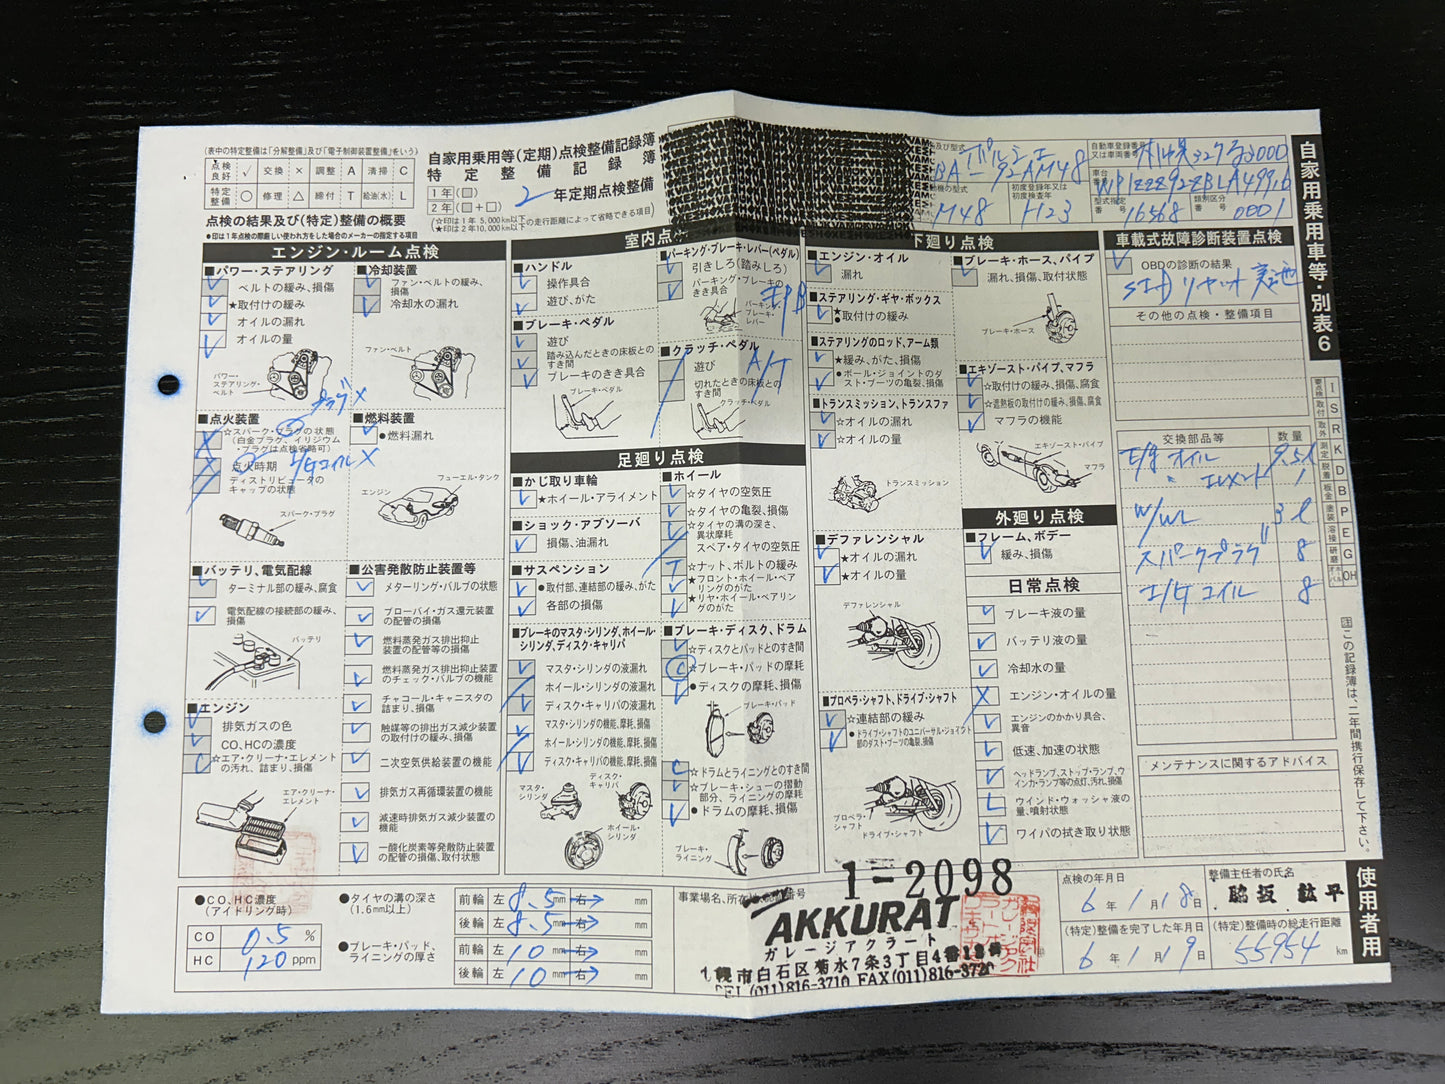 (表中の特定整備は「分解整備」及び「電子制御装置整備」をいう)
点検良好 ✓ 交換 × 調整 A 清掃 C
特定整備 ○ 修理 △ 締付 T 給油(水) L
点検の結果及び(特定)整備の概要
●印は1年点検の際厳しい使われ方をした場合のメーカーの指定する項目
自家用乗用等(定期)点検整備記録簿
特定整備記録簿
1年(□)
2年(□+□)
2年定期点検整備
(☆印は1年 5,000km以下 ★印は2年10,000km以下の走行距離によって省略できる項目)
ポルシェ
BA-92AM48
自動車登録番号又は車両番号
3000
車台番号
M48
初度登録年又は初度検査年
H23
型式指定番号
16568
類別区分番号
0001
自家用乗用車等・別表6
エンジン・ルーム点検
■パワー・ステアリング
ベルトの緩み、損傷
★取付けの緩み
オイルの漏れ
オイルの量
パワー・ステアリング・ベルト
■冷却装置
ファン・ベルトの緩み、損傷
冷却水の漏れ
ファン・ベルト
プラグ×
■点火装置
☆スパーク・プラグの状態
(白金プラグ、イリジウム・プラグは点検省略可)
点火時期
ディストリビュータのキャップの状態
I/Gコイル×
スパーク・プラグ
■燃料装置
●燃料漏れ
エンジン
フューエル・タンク
■バッテリ、電気配線
ターミナル部の緩み、腐食
電気配線の接続部の緩み、損傷
バッテリ
■エンジン
排気ガスの色
CO、HCの濃度
☆エア・クリーナ・エレメントの汚れ、詰まり、損傷
エア・クリーナ・エレメント
■公害発散防止装置等
メターリング・バルブの状態
ブローバイ・ガス還元装置の配管の損傷
燃料蒸発ガス排出抑止装置の配管等の損傷
燃料蒸発ガス排出抑止装置のチェック・バルブの機能
チャコール・キャニスタの詰まり、損傷
触媒等の排出ガス減少装置の取付けの緩み、損傷
二次空気供給装置の機能
排気ガス再循環装置の機能
減速時排気ガス減少装置の機能
一酸化炭素等発散防止装置の配管の損傷、取付状態
室内点検
■ハンドル
操作具合
遊び、がた
■ブレーキ・ペダル
遊び
踏み込んだときの床板とのすき間
ブレーキのきき具合
ブレーキ・ペダル
■パーキング・ブレーキ・レバー(ペダル)
引きしろ(踏みしろ)
パーキング・ブレーキのきき具合
EPB
パーキング・ブレーキ・レバー
■クラッチ・ペダル
A/T
遊び
切れたときの床板とのすき間
クラッチ・ペダル
足廻り点検
■かじ取り車輪
★ホイール・アライメント
■ショック・アブソーバ
損傷、油漏れ
■サスペンション
●取付部、連結部の緩み、がた
各部の損傷
■ブレーキのマスタ・シリンダ、ホイール・シリンダ、ディスク・キャリパ
マスタ・シリンダの液漏れ
ホイール・シリンダの液漏れ
ディスク・キャリパの液漏れ
マスタ・シリンダの機能、摩耗、損傷
ホイール・シリンダの機能、摩耗、損傷
ディスク・キャリパの機能、摩耗、損傷
マスタ・シリンダ
ディスク・キャリパ
ホイール・シリンダ
■ホイール
☆タイヤの空気圧
☆タイヤの亀裂、損傷
☆タイヤの溝の深さ、異状摩耗
スペア・タイヤの空気圧
☆ナット、ボルトの緩み
★フロント・ホイール・ベアリングのがた
★リヤ・ホイール・ベアリングのがた
■ブレーキ・ディスク、ドラム
☆ディスクとパッドとのすき間
☆ブレーキ・パッドの摩耗
●ディスクの摩耗、損傷
ブレーキ・パッド
☆ドラムとライニングとのすき間
☆ブレーキ・シューの摺動部分、ライニングの摩耗
●ドラムの摩耗、損傷
ブレーキ・ライニング
下廻り点検
■エンジン・オイル
漏れ
■ステアリング・ギヤ・ボックス
★取付けの緩み
■ステアリングのロッド、アーム類
★緩み、がた、損傷
●ボール・ジョイントのダスト・ブーツの亀裂、損傷
■トランスミッション、トランスファ
☆オイルの漏れ
☆オイルの量
トランスミッション
■デファレンシャル
★オイルの漏れ
★オイルの量
デファレンシャル
■プロペラ・シャフト、ドライブ・シャフト
☆連結部の緩み
●ドライブ・シャフトのユニバーサル・ジョイント部のダスト・ブーツの亀裂、損傷
プロペラ・シャフト
ドライブ・シャフト
■ブレーキ・ホース、パイプ
漏れ、損傷、取付状態
ブレーキ・ホース
■エキゾースト・パイプ、マフラ
☆取付けの緩み、損傷、腐食
☆遮熱板の取付けの緩み、損傷、腐食
マフラの機能
エキゾースト・パイプ
マフラ
外廻り点検
■フレーム、ボデー
緩み、損傷
日常点検
ブレーキ液の量
バッテリ液の量
冷却水の量
エンジン・オイルの量
エンジンのかかり具合、異音
低速、加速の状態
ヘッドランプ、ストップ・ランプ、ウインカ・ランプ等の点灯、汚れ、損傷
ウインド・ウォッシャ液の量、噴射状態
ワイパの拭き取り状態
車載式故障診断装置点検
OBDの診断の結果
その他の点検・整備項目
交換部品等 数量
E/g オイル 9.5ℓ
〃 エレメント 1
W/WL 3ℓ
スパークプラグ 8
I/Gコイル 8
メンテナンスに関するアドバイス
I S R K D B P E G OH
注この記録簿は二年間携行保存して下さい。
使用者用
●CO、HC濃度(アイドリング時)
CO 0.5 %
HC 120 ppm
●タイヤの溝の深さ(1.6mm以上)
前輪 左 8.5 mm 右→ mm
後輪 左 8.5 mm 右→ mm
●ブレーキ・パッド、ライニングの厚さ
前輪 左 10 mm 右→ mm
後輪 左 10 mm 右→ mm
1-2098
AKKURAT
ガレージアクラート
札幌市白石区菊水7条3丁目4番12号
TEL(011)816-3710 FAX(011)816-3720
点検の年月日
6年1月18日
整備主任者の氏名
脇坂 紘平
(特定)整備を完了した年月日
6年1月19日
(特定)整備時の総走行距離
55954 km